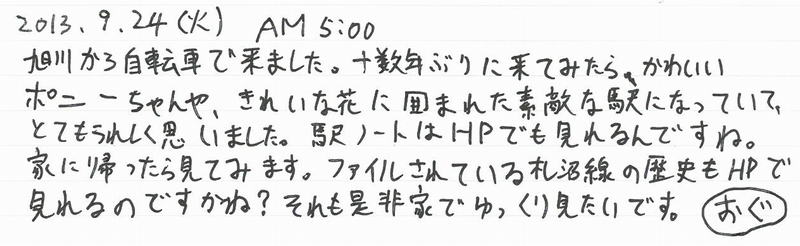 2013.9.24(火) AM 5:00
旭川から自転車で来ました。十数年ぶりに来てみたら、かわいい
ポニーちゃんや、きれいな花に囲まれた素敵な駅になっていて、
とてもうれしく思いました。駅ノートはHPでも見れるんですね。
家に帰ったら見てみます。ファイルされている札沼線の歴史もHPで
見れるのですかね?それも是非家でゆっくり見たいです。 おぐ